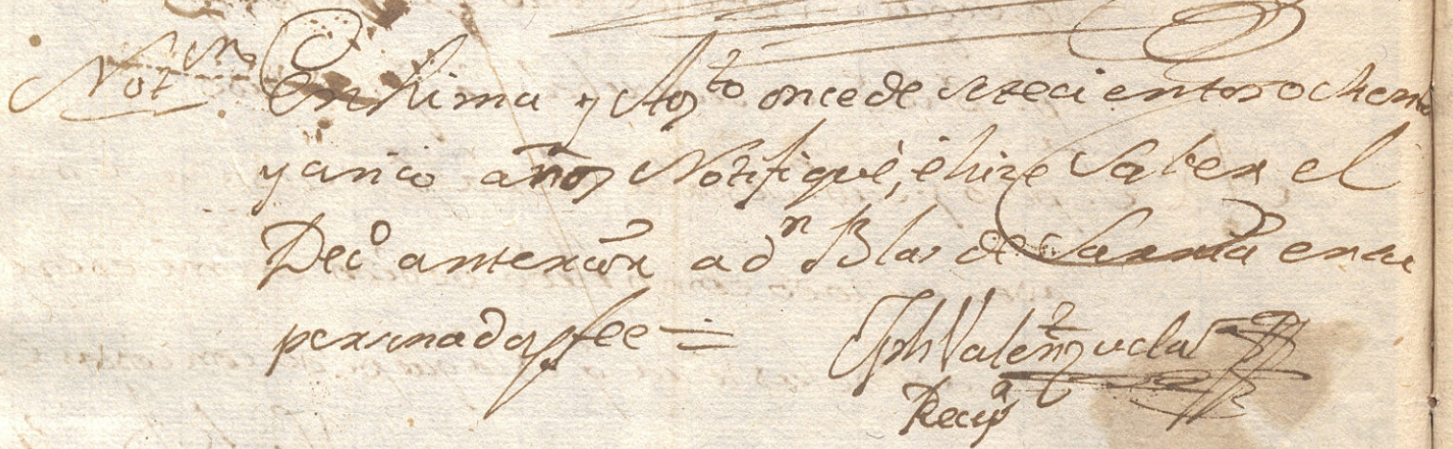 Not.on En Lima y Agto once de setecientos ochenta
y cinco años Notifiqué, é hize saber el
Deco anterior a dn Blas de en su
persona doy fee =
Jph Valenzuela
Recepr